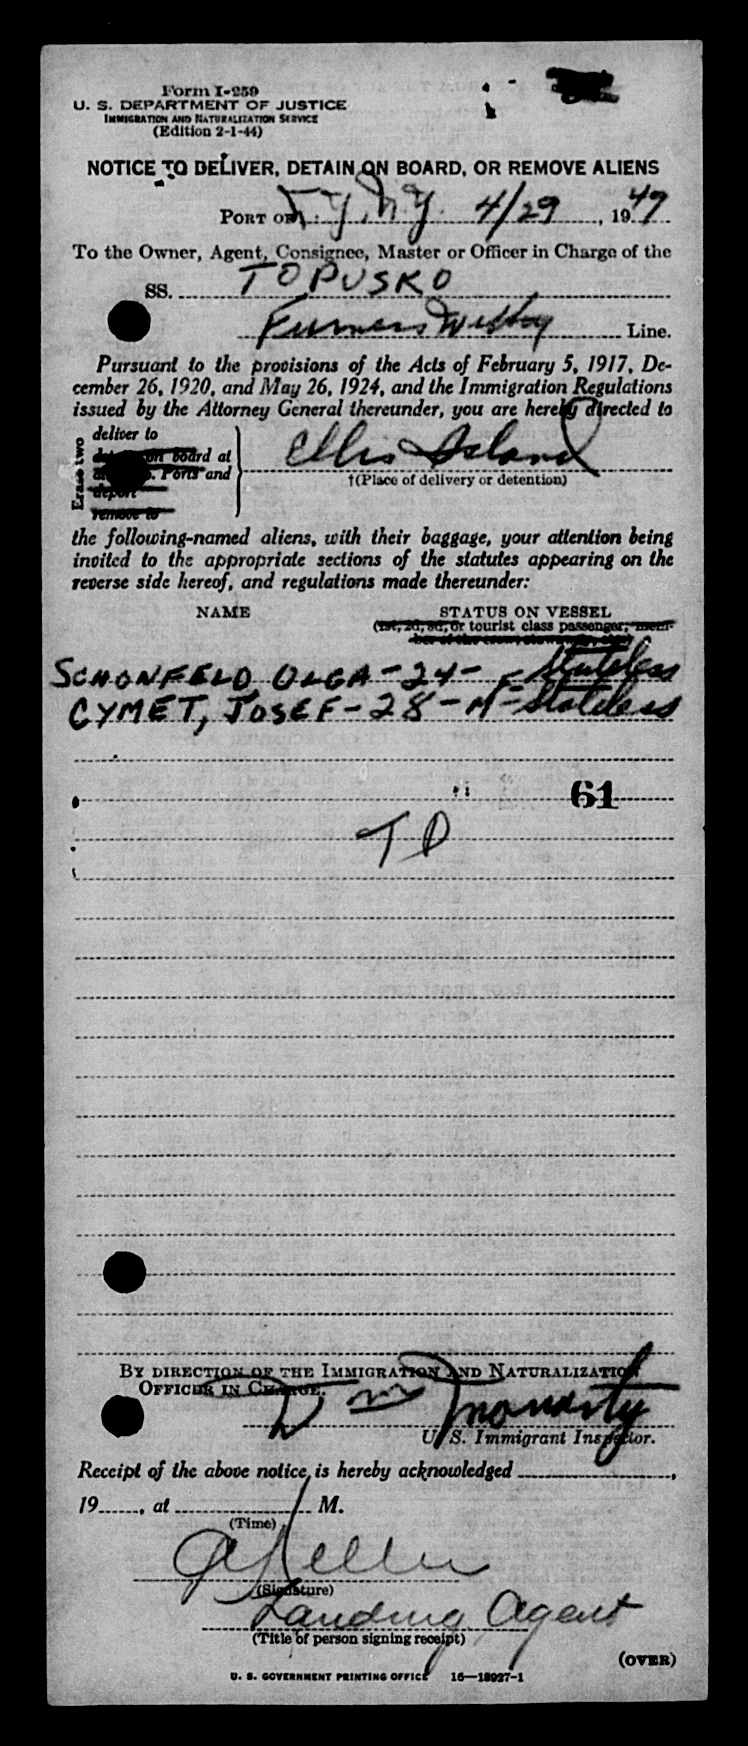 Form I-259
U. S. DEPARTMENT OF JUSTICE
IMMIGRATION AND NATURALIZATION SERVICE
(Edition 2-1-44)
NOTICE TO DELIVER, DETAIN ON BOARD, OR REMOVE ALIENS
PORT OF N. Y. N Y. 4/29, 1947
To the Owner, Agent, Consignee, Master or Officer in Charge of the
SS. TOPUSKO
Furness Withy Line.
Pursuant to the provisions of the Acts of February 5, 1917, De-
cember 26, 1920, and May 26, 1924, and the Immigration Regulations
issued by the Attorney General thereunder, you are hereby directed to
Erase two
deliver to
detain on board at
and
deport
remove to
Ellis Island
†(Place of delivery or detention)
the following-named aliens, with their baggage, your attention being
invited to the appropriate sections of the statutes appearing on the
reverse side hereof, and regulations made thereunder:
NAME STATUS ON VESSEL
(1st, 2d, 3d, or tourist class passenger, mem-
ber of the crew, stowaway, etc.)
SCHONFELD OLGA - 24 - F - Stateless
CYMET, JOSEF - 28 - M - Stateless
61
T D
BY DIRECTION OF THE IMMIGRATION AND NATURALIZATION
OFFICER IN CHARGE.
Moriarity
U. S. Immigrant Inspector.
Receipt of the above notice is hereby acknowledged ,
19 , at M.
(Time)
(Signature)
Landing Agent
(Title of person signing receipt)
(OVER)
U. S. GOVERNMENT PRINTING OFFICE 16—18927-1